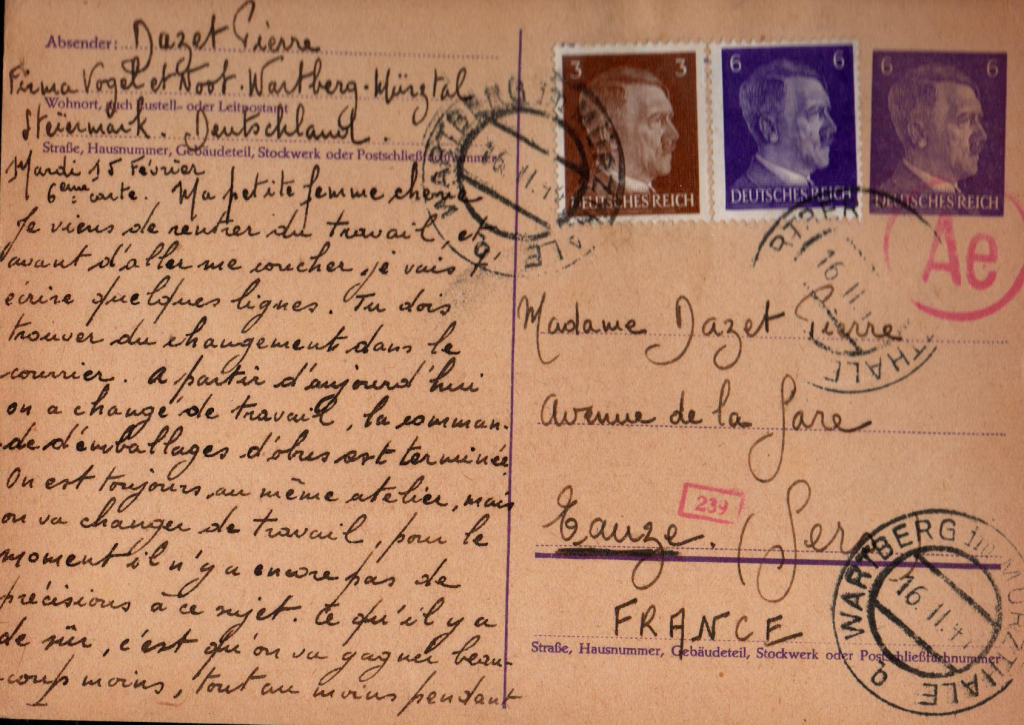 Absender: Dazet Pierre
Firma Vogel et Noot. Wartberg. Mürztal
Wohnort, auch Zustell- oder Leitpostamt
Steiermark. Deutschland.
Straße, Hausnummer, Gebäudeteil, Stockwerk oder Postschließfachnummer
Mardi 15 Février
6eme carte. Ma petite femme chérie
Je viens de rentrer du travail, et
avant d'aller me coucher, je vais t'
écrire quelques lignes. Tu dois
trouver du changement dans le
courrier. A partir d'aujourd'hui
on a changé de travail, la comman-
de d'emballages d'obus est terminée
On est toujours au même atelier, mais
on va changer de travail, pour le
moment il n'y a encore pas de
précisions à ce sujet. Ce qu'il y a
de sûr, c'est qu'on va gagner beau-
coup moins, tout au moins pendant
3 3
DEUTSCHES REICH
6 6
DEUTSCHES REICH
6 6
DEUTSCHES REICH
WARTBERG
16.11.4
Ae
RTBER
16 11
THALE
Madame Dazet Pierre
Avenue de la Gare
239
Eauze. (Gers
FRANCE
Straße, Hausnummer, Gebäudeteil, Stockwerk oder Postschließfachnummer
WARTBERG im MÜRZTHALE
16.11.4
Q